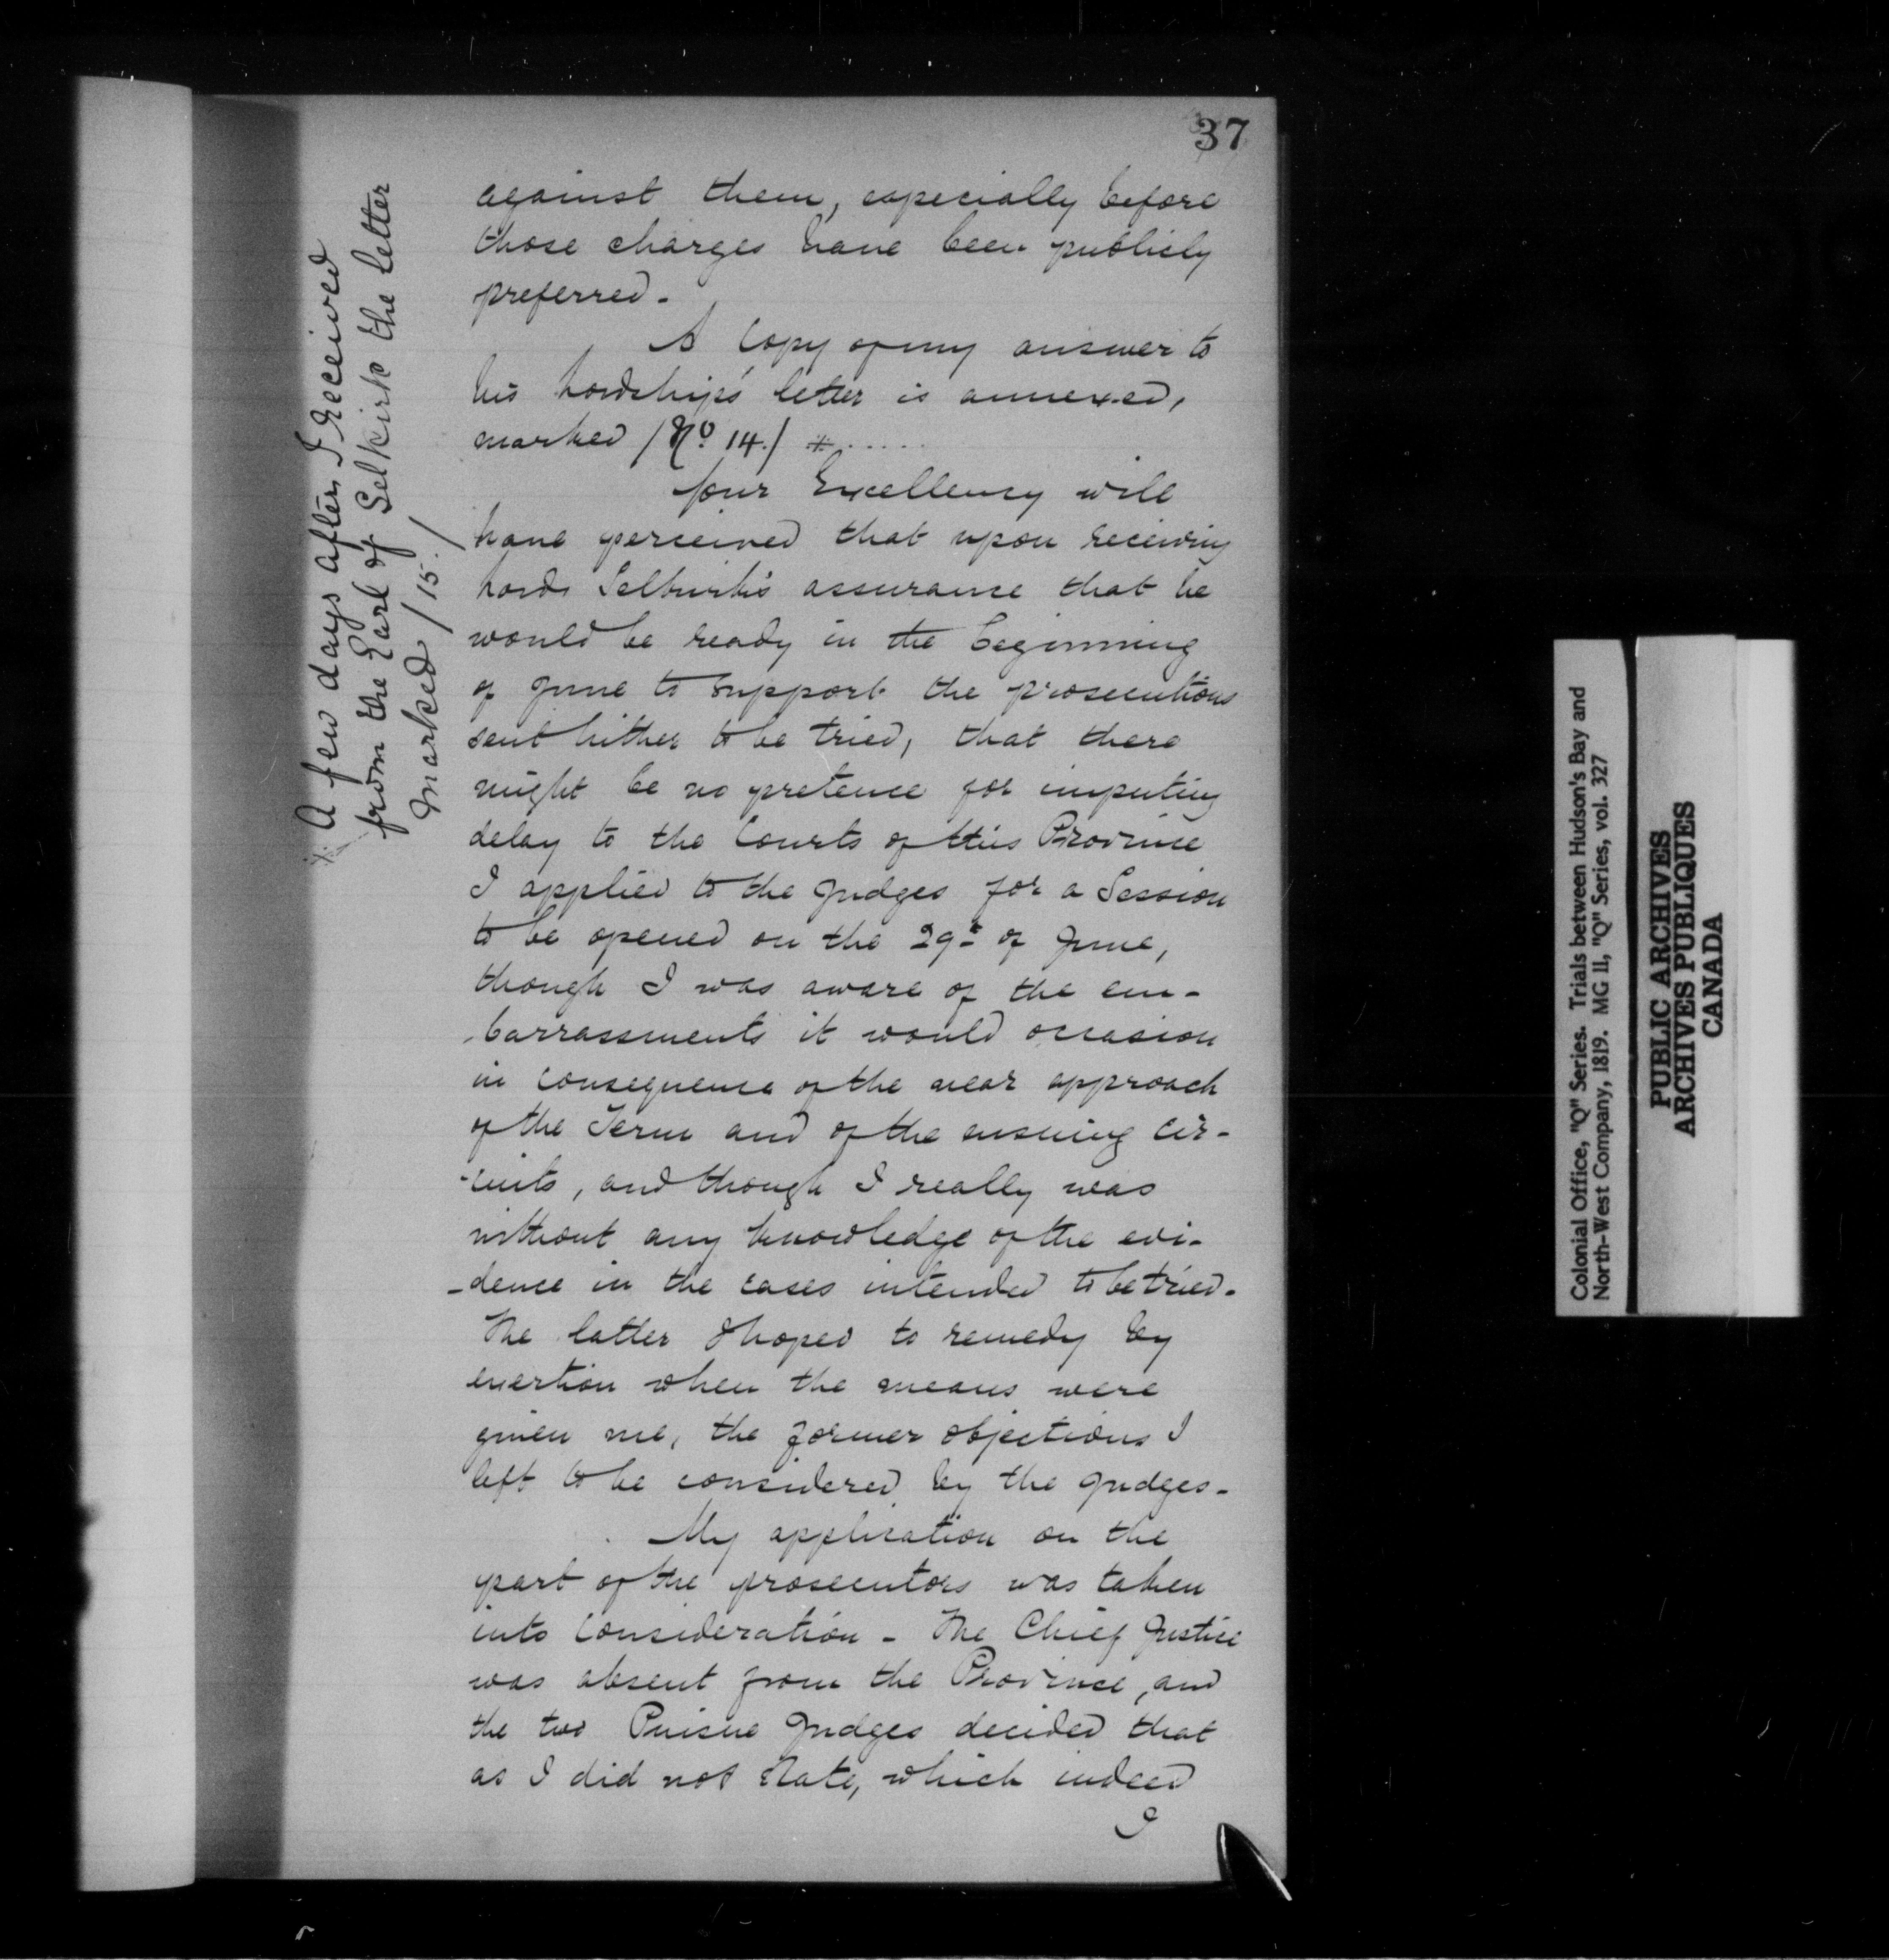 37
against them, especially before
those charges have been publicly
preferred.
A Copy of my answer to
his Lordship's letter is annexed,
marked / No 14. / * .....
Your Excellency will
have perceived that upon receiving
Lord Selkirk's assurance that he
would be ready in the beginning
of June to support the prosecutions
sent hither to be tried, that there
might be no pretence for imputing
delay to the Courts of this Province
I applied to the Judges for a Session
to be opened on the 29th of June,
though I was aware of the em-
-barrassments it would occasion
in consequence of the near approach
of the Term and of the ensuing cir-
-cuits, and though I really was
without any knowledge of the evi-
-dence in the cases intended to be tried.
The latter I hoped to remedy by
exertion when the means were
given me, the former objections I
left to be considered by the Judges.
My application on the
part of the prosecutors was taken
into consideration - The Chief Justice
was absent from the Province, and
the two Puisne Judges decided that
as I did not state, which indeed
I
* A few days after I received
from the Earl of Selkirk the letter
marked / 15. /
Colonial Office, "Q" Series. Trials between Hudson's Bay and
North-West Company, 1819. MG 11, "Q" Series, vol. 327
PUBLIC ARCHIVES
ARCHIVES PUBLIQUES
CANADA